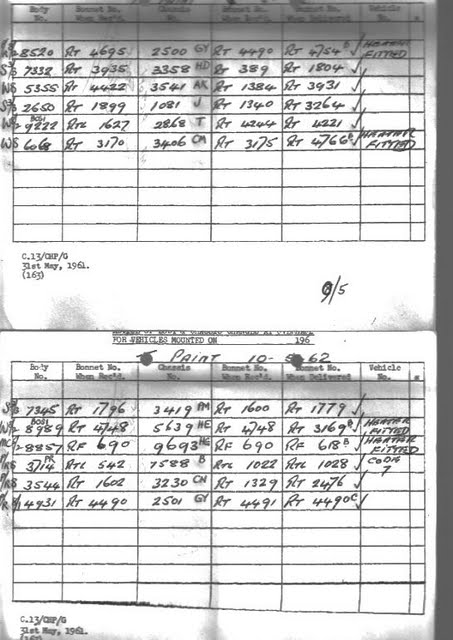 Body Bonnet No. Chassis Bonnet No. Bonnet No. Vehicle
No. When Rec'd. No. When Rec'd. When Delivered No.
8520 RT 4695 2500 GY RT 4490 RT 4754 B HEATER FITTED
7332 RT 3935 3358 HD RT 389 RT 1804
WS 5355 RT 4422 3541 AK RT 1384 RT 3931
2650 RT 1899 1081 J RT 1340 RT 3264
9222 RTL 1627 2868 T RT 4244 RT 4221
WS 6068 RT 3170 3406 CM RT 3175 RT 4766 HEATER FITTED
C.13/CHP/G
31st May, 1961.
(163)
9/5
FOR VEHICLES MOUNTED ON 196
TO PAINT 10-5-62
Body Bonnet No. Chassis Bonnet No. Bonnet No. Vehicle
No. When Rec'd. No. When Rec'd. When Delivered No.
7345 RT 1796 3419 RT 1600 RT 1779
8989 RT 4748 5639 HE RT 4748 RT 3169 HEATER FITTED
8857 RF 690 9693 HG RF 690 RF 618 B HEATER FITTED
3714 RTL 542 7588 B RTL 1022 RTL 1028
3544 RT 1602 3230 CN RT 1329 RT 2476
4931 RT 4490 2501 GY RT 4491 RT 4490 C
C.13/CHP/G
31st May, 1961.